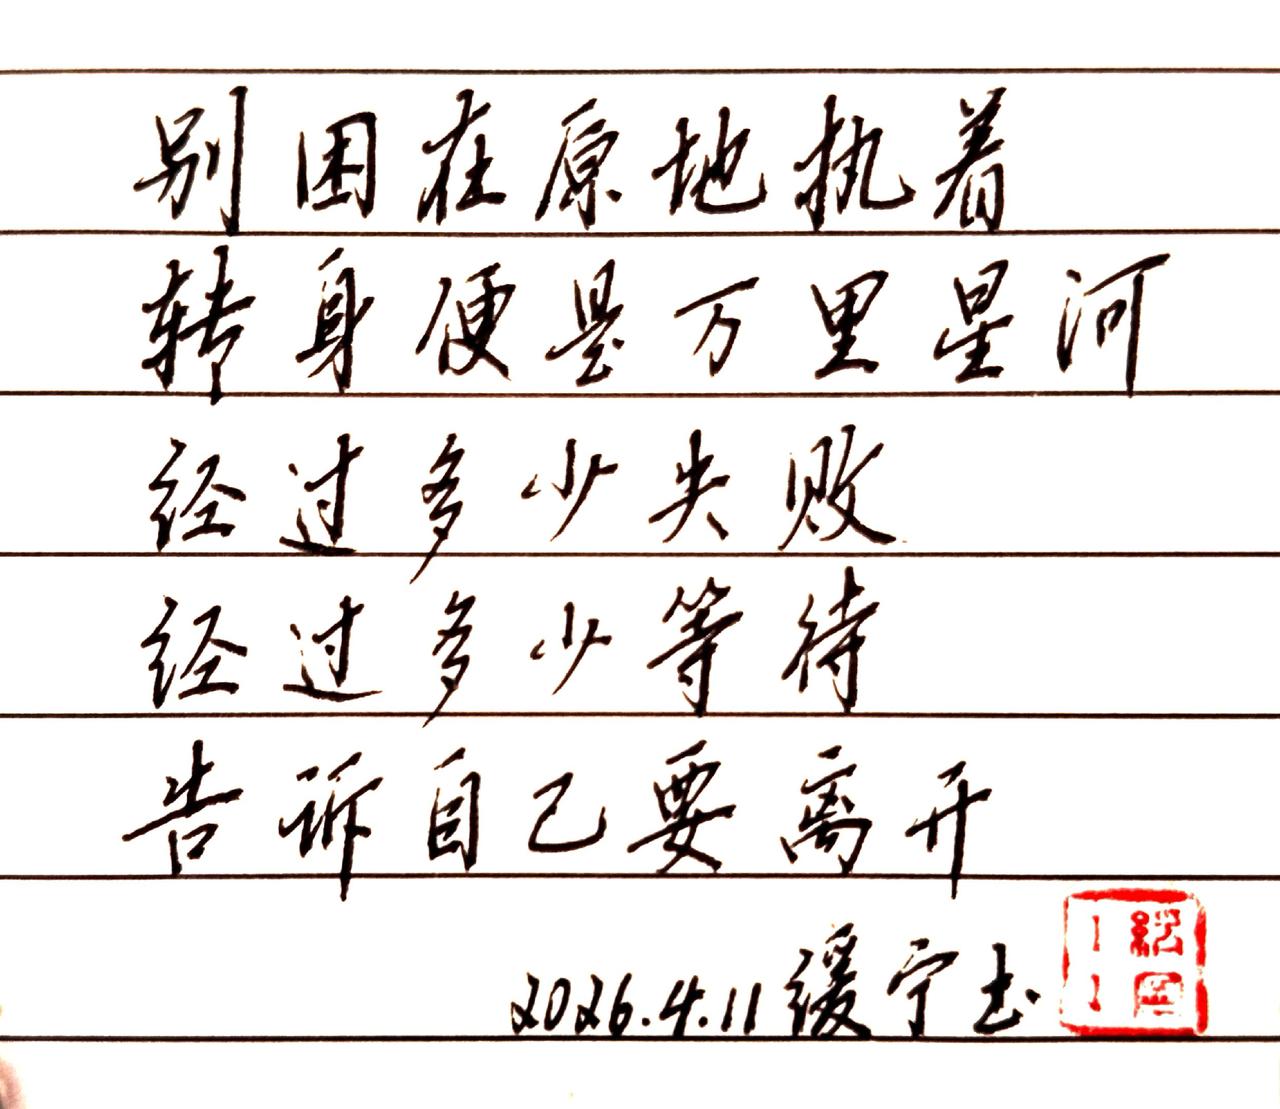 别困在原地执着
转身便是万里星河
经过多少失败
经过多少等待
告诉自己要离开
2026.4.11 缓宁书